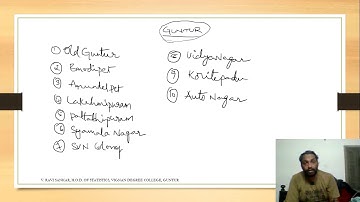 GUNTUR
① Old Guntur
② Brodipet
③ Arundelpet
④ Lakshmipuram
⑤ Pattabhipuram
⑥ Syamala Nagar
⑦ SVN Colony
⑧ VidyaNagar
⑨ Koritepadu
⑩ Auto Nagar
V. RAVI SANKAR, H.O.D. OF STATISTICS, VIGNAN DEGREE COLLEGE, GUNTUR